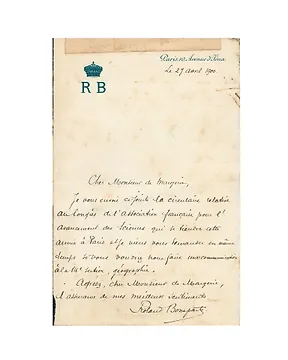 RB
Paris, 10, Avenue d'Iéna
Le 27 avril 1900
Cher Monsieur de Margerie,
Je vous envoie ci-joint la circulaire relative
au Congrès de l'Association française pour l'
avancement des Sciences qui se tiendra cette
année à Paris et je viens vous demander en même
temps si vous voudriez nous faire une communication
à la section, géographie.
Agréez, cher Monsieur de Margerie,
l'assurance de mes meilleurs sentiments
Roland Bonaparte